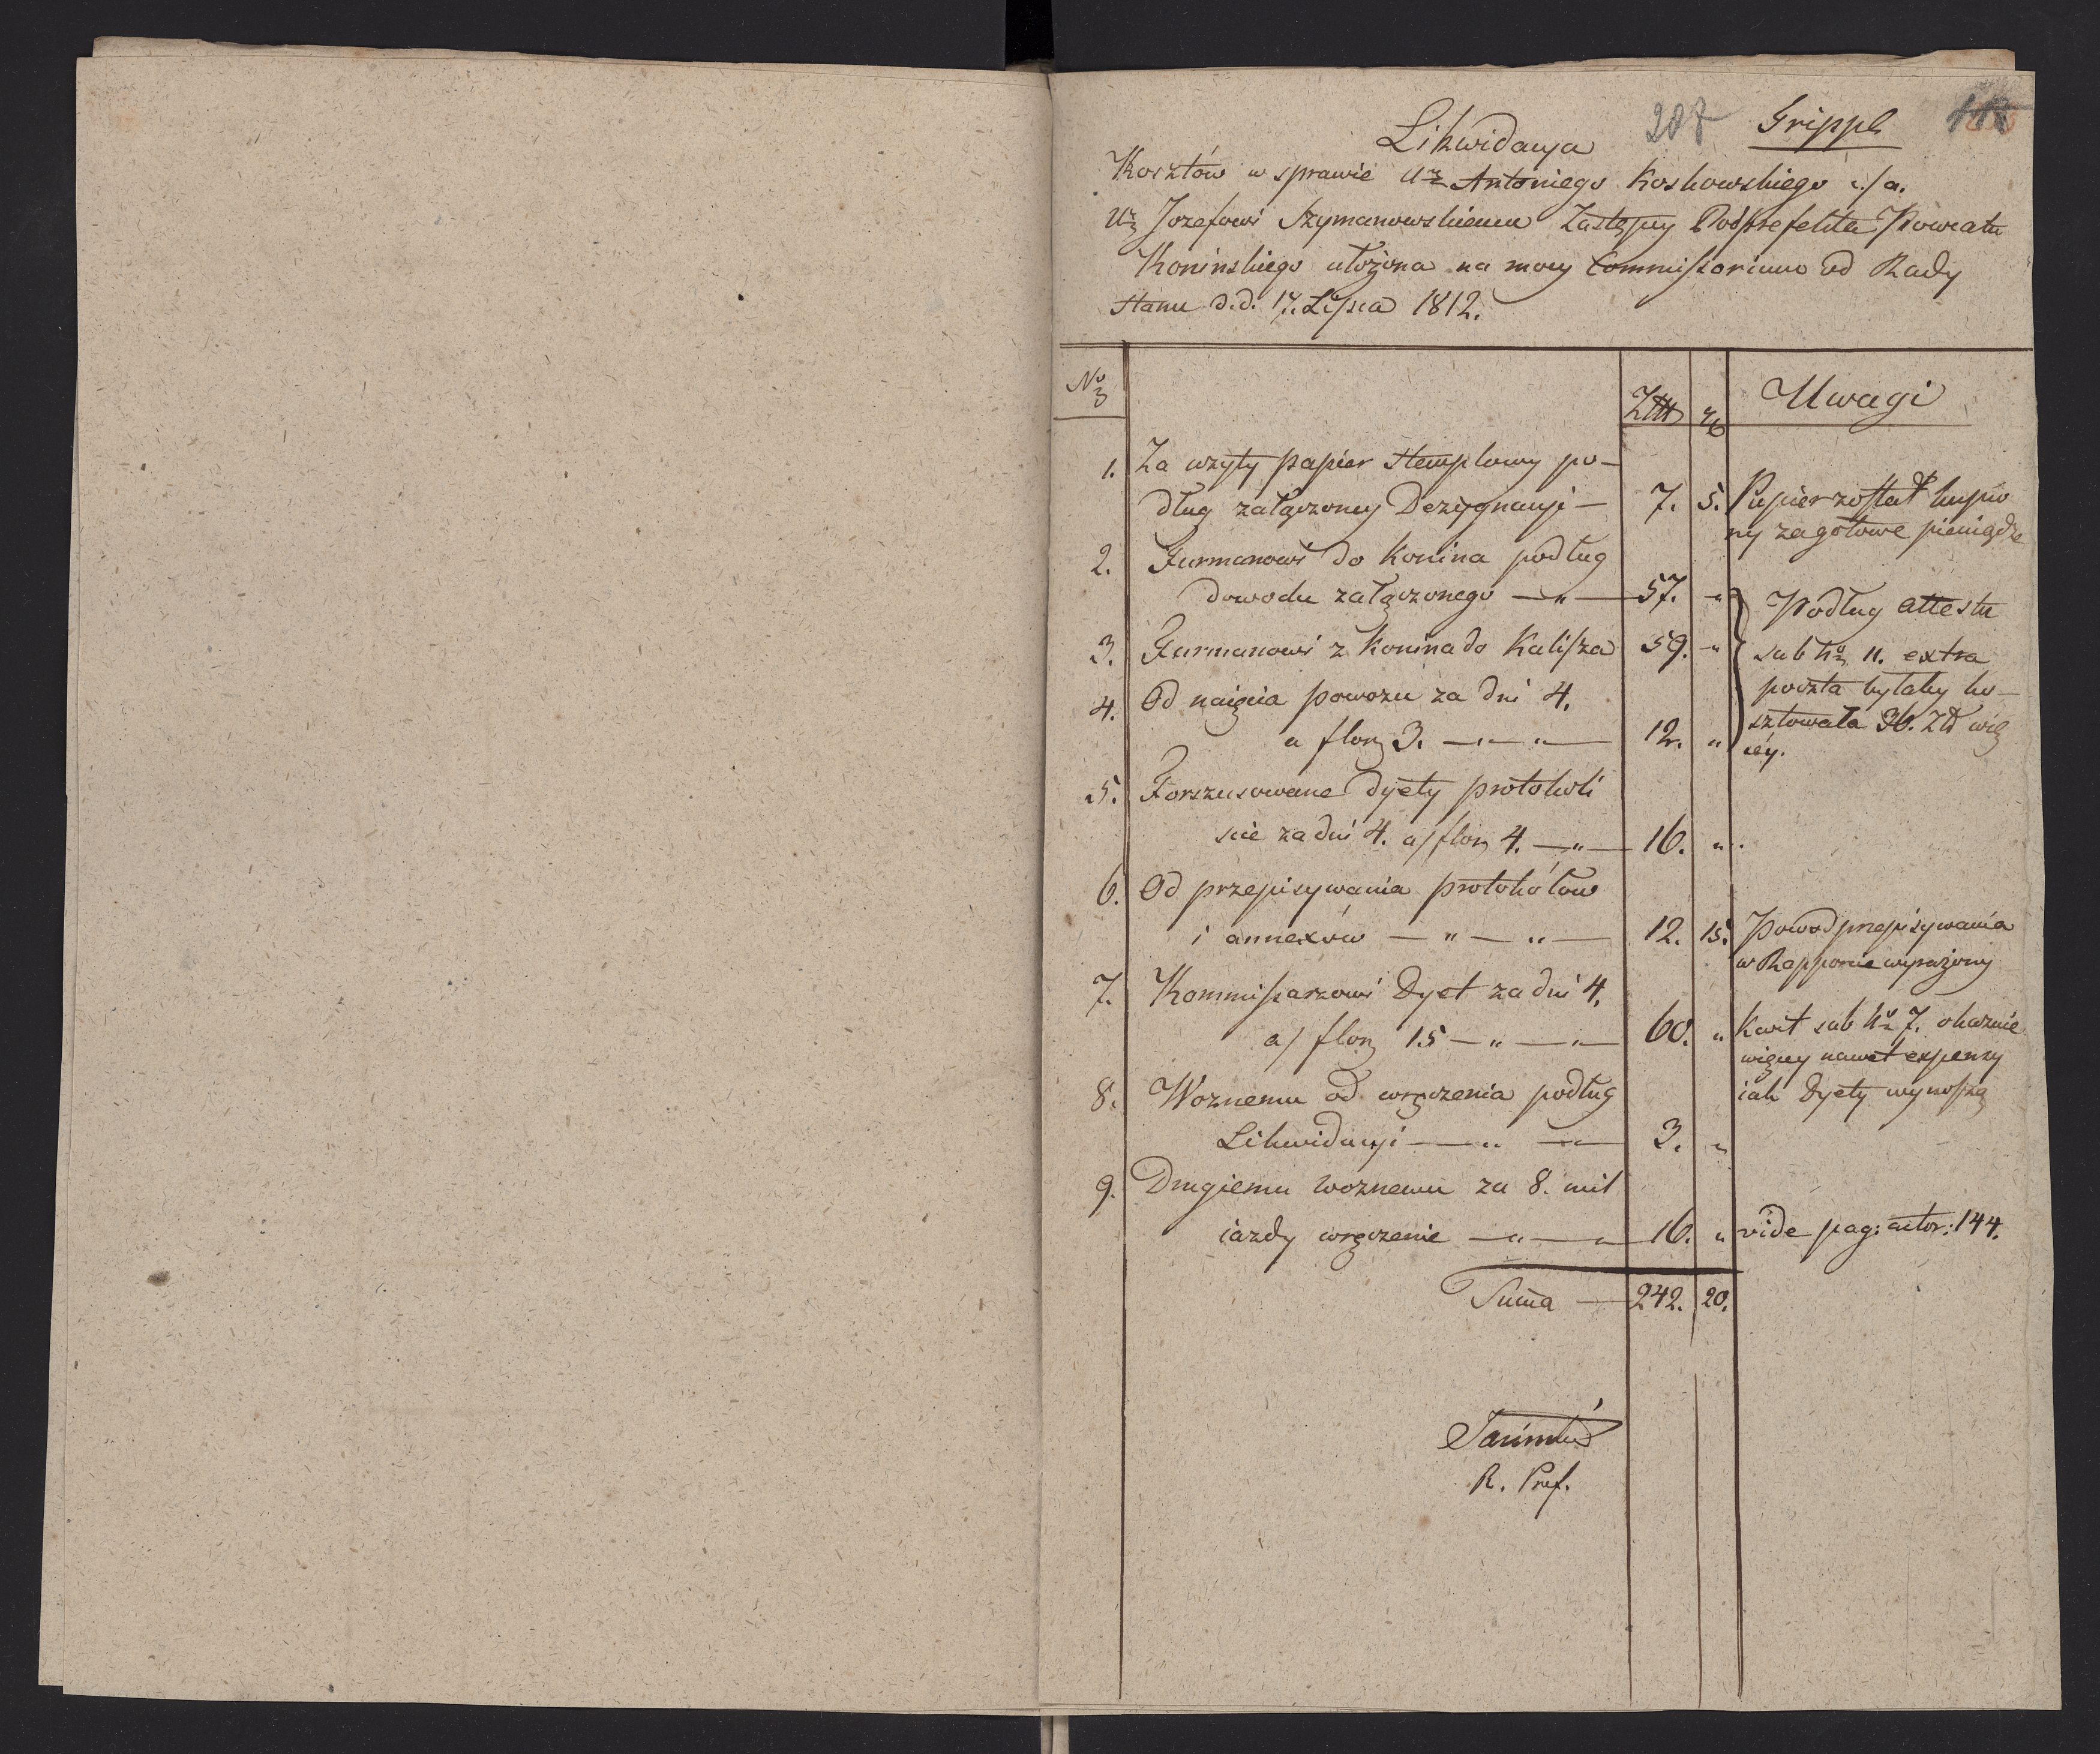 207 Grippl
Likwidacya
Kosztów w sprawie Ur Antoniego Koskowskiego c/a.
Ur Jozefowi Szymanowskiemu Zastępcy Podprefekta Powiatu
Konińskiego ułożona na mocy Commissorium od Rady
Stanu d.d. 17. Lipca 1812.
No Złł gr Uwagi
1. Za wzyty papier stemplowy po-
dług załączoney Dezygnacyi — 7. 5. Papier został kupio
ny za gotowe pieniądze
2. Furmanowi do Konina podług
dowodu załączonego — " — 57. " Podług attestu
3. Furmanowi z Konina do Kalisza 59. " sub No 11. extra
poczta byłaby ko-
4. Od naięcia powozu za dni 4. sztowała 36. Złł wię
a flor 3. — " — " — 12. " céy.
5. Forszusowane dyety protokoli
ście za dni 4. a/ flor 4. — " — 16. "
6. Od przepisywania protokółow
i annexów — " — " — 12. 15. Powod przepisywania
w Rapporcie wyrażony
7. Kommissarzowi Dyet za dni 4.
a/ flor 15 — " — " — 60. " Kwit sub No 7. okazuie
więcey nawet expensy
8. Woznemu od wręczenia podług iak Dyety wynoszą
Likwidacyi — " — " — 3. "
9. Drugiemu woznemu za 8. mil
iazdy wręczenie — " — " — 16. " vide pag: actor: 144.
Suma — 242. 20.
R. Pref.